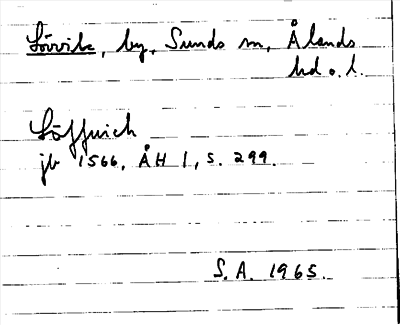 Lövvik, by, Sunds sn, Ålands
hd o. l.
Löffwich
jb 1566, ÅH 1, s. 299.
S. A. 1965.